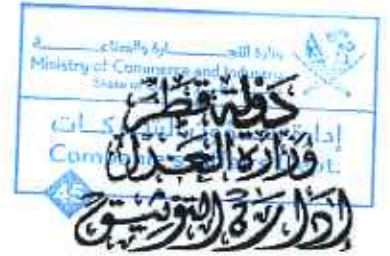 وزارة التجارة والصناعة
Ministry of Commerce and Industry
State of
دولة قطر
وزارة العدل
إدارة التوثيق
45